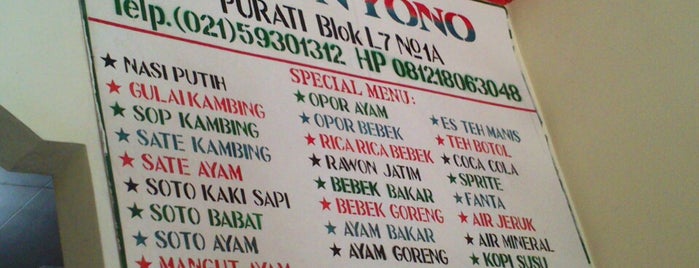 YONO
PURATI Blok L7 No1A
Telp.(021)59301312 HP 081218063048
SPECIAL MENU:
★ NASI PUTIH
★ GULAI KAMBING
★ SOP KAMBING
★ SATE KAMBING
★ SATE AYAM
★ SOTO KAKI SAPI
★ SOTO BABAT
★ SOTO AYAM
★ MANGUT AYAM
★ OPOR AYAM
★ OPOR BEBEK
★ RICA RICA BEBEK
★ RAWON JATIM
★ BEBEK BAKAR
★ BEBEK GORENG
★ AYAM BAKAR
★ AYAM GORENG
★ ES TEH MANIS
★ TEH BOTOL
★ COCA COLA
★ SPRITE
★ FANTA
★ AIR JERUK
★ AIR MINERAL
★ KOPI SUSU